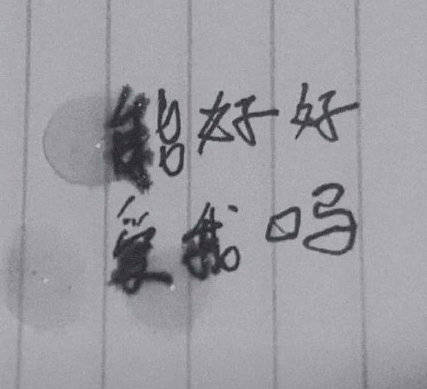 能好好
爱我吗